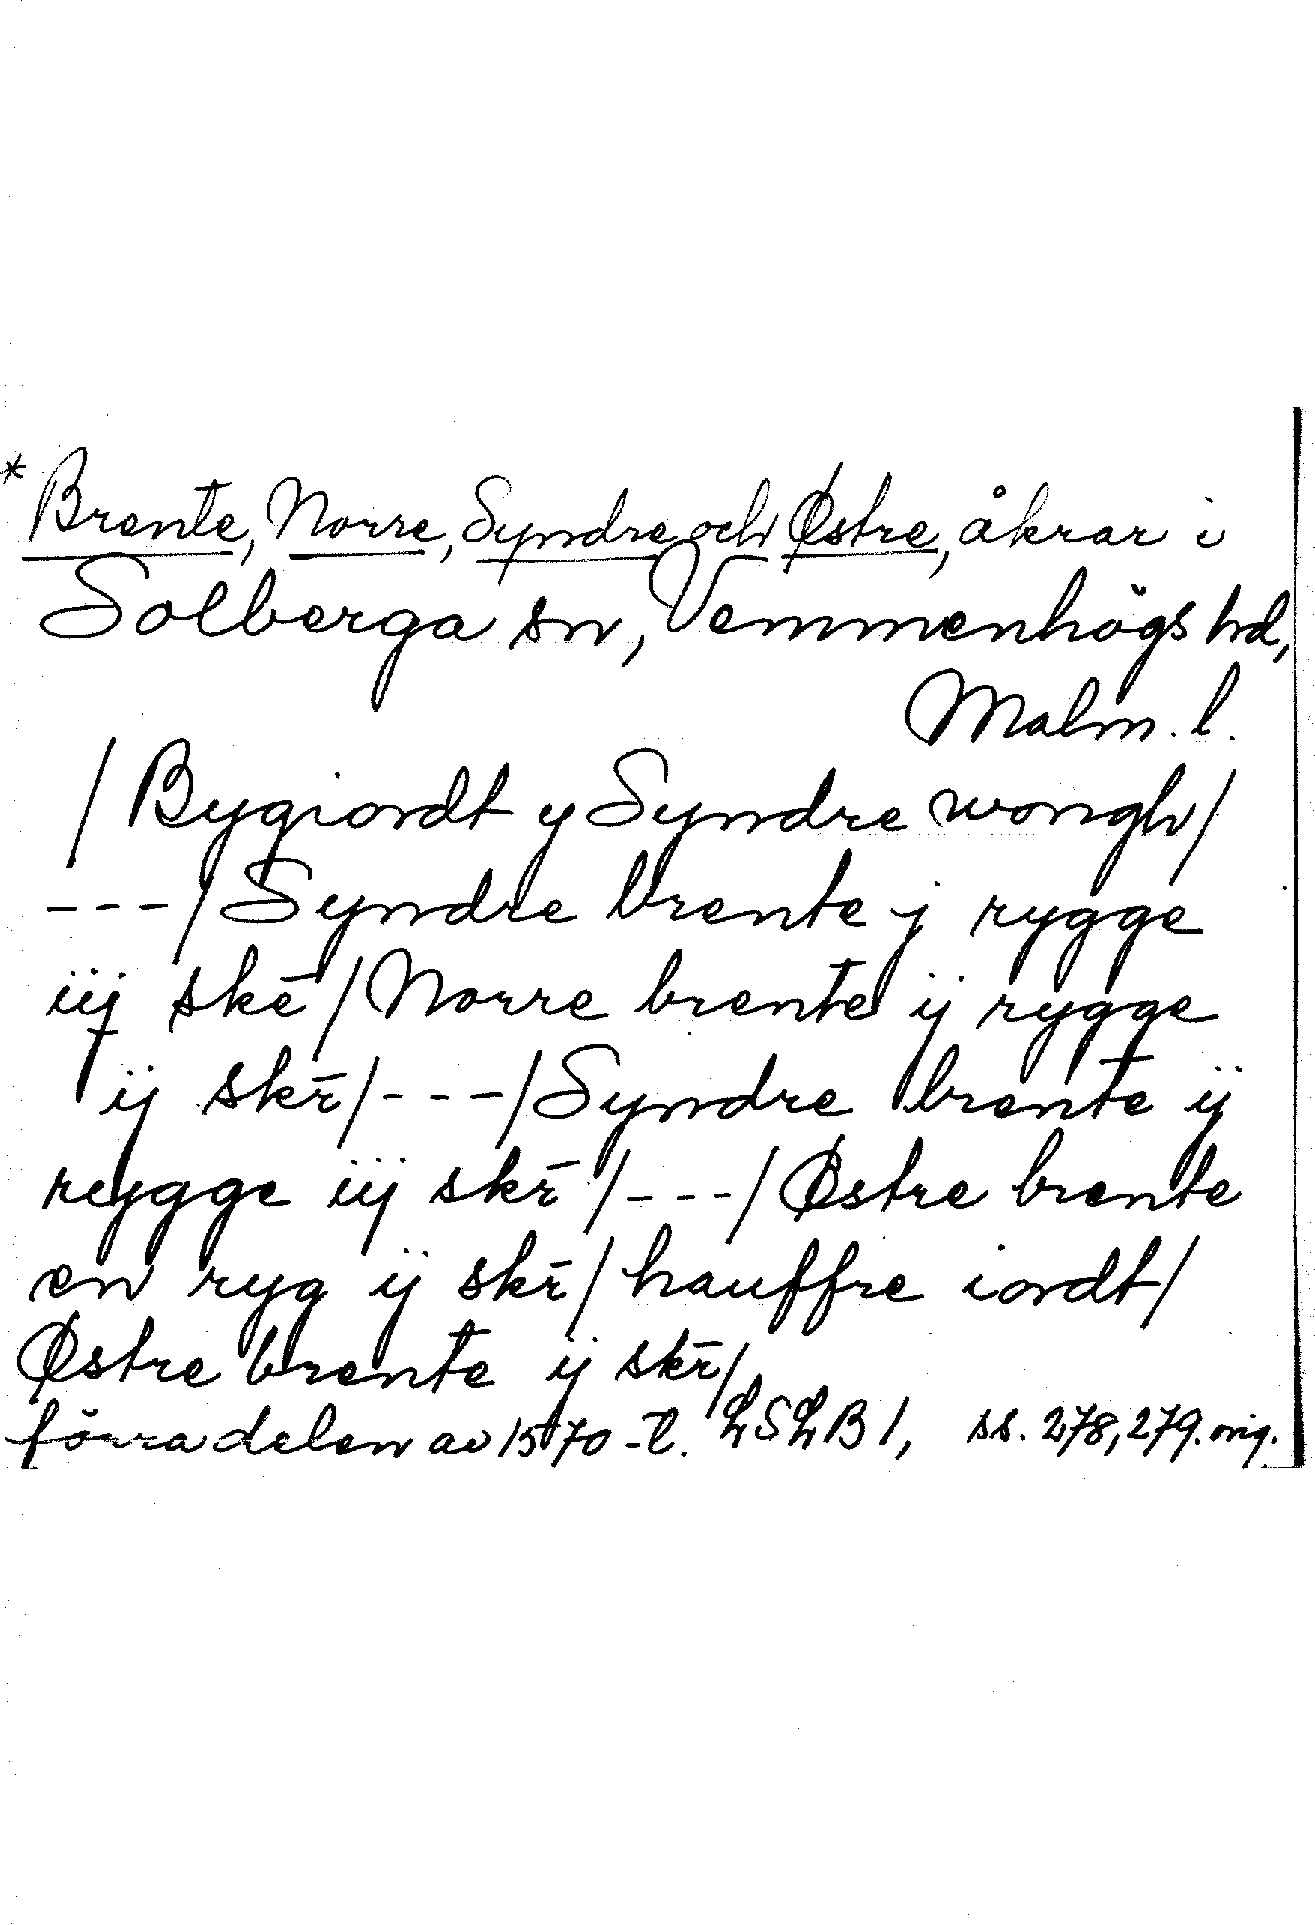 * Brente, Norre, Syndre och Østre, åkrar i
Solberga sn, Vemmenhögs hd,
Malm. l.
/ Bygiordt y Syndre wongh/
---/ Syndre brente j rygge
iij skē / Norre brente ij rygge
ij skr̄/---/ Syndre brente ij
rygge iij skr̄ /---/ Østre brente
en ryg ij skr̄/ hauffre iordt/
Østre brente ij skr̄/
förra delen av 1570-t. LSLB 1, ss. 278, 279. orig.